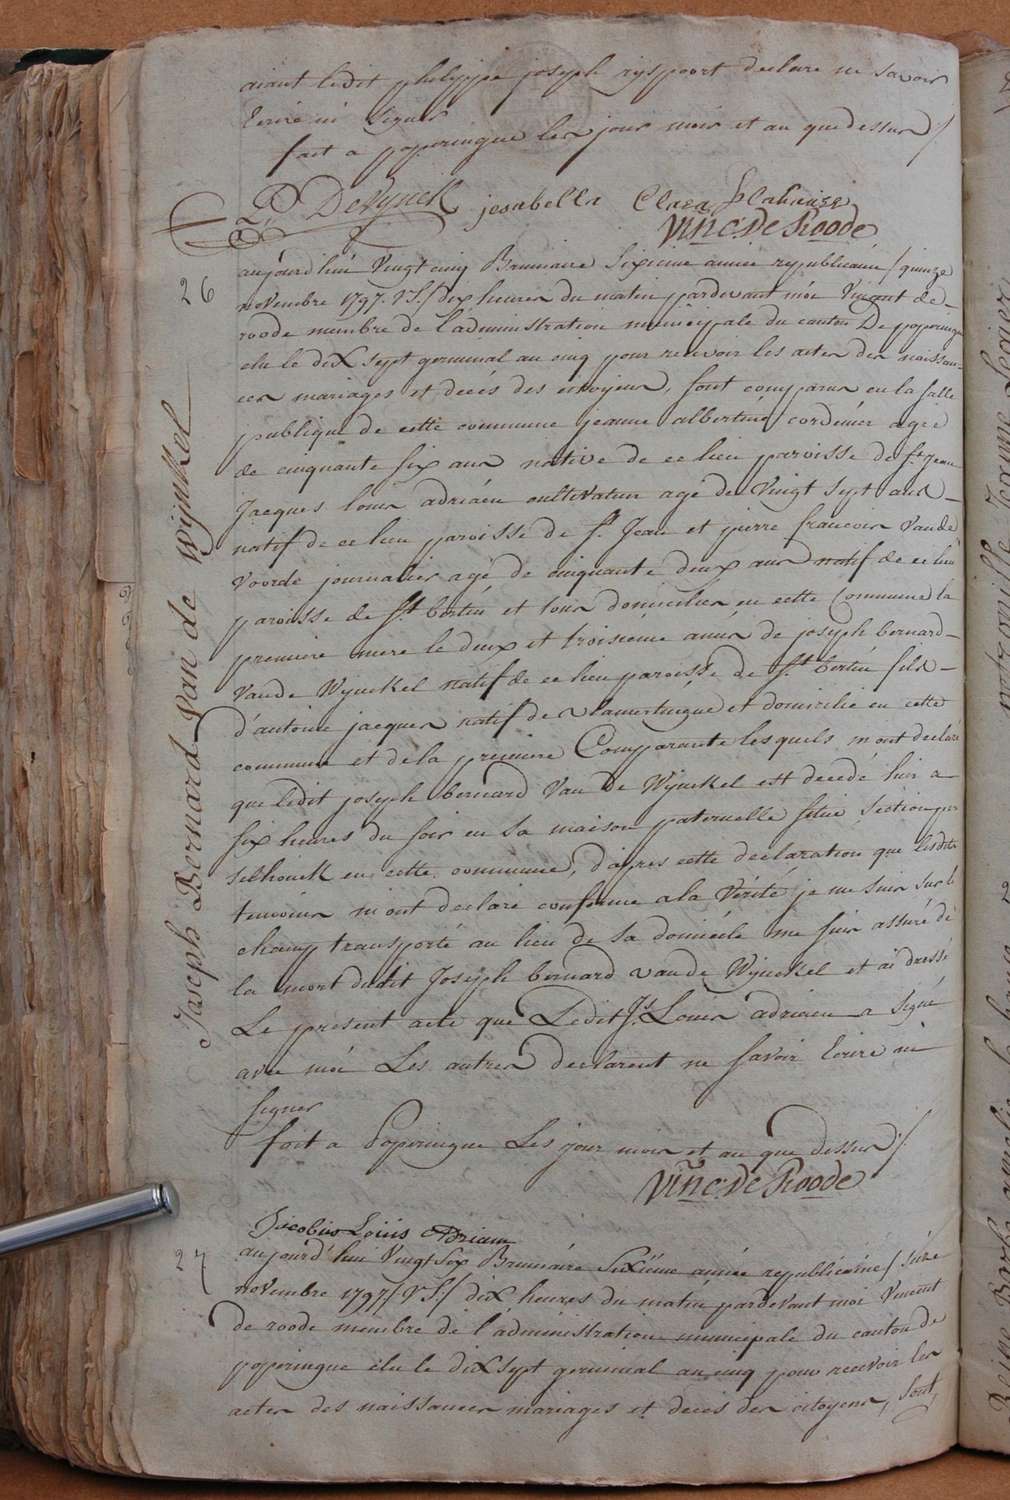 aiant ledit philippe joseph ryspoort declaré ne savoir
Ecrire ni signer
fait a poperingue les jour mois et an que dessus /
DeRynck jesabella Clara
Vinc. De Roode
26
aujourd'hui Vingt cinq Brumaire Sixieme année republicaine / quinze
novembre 1797. V.S./ dix heures du matin pardevant moi Vincent de
roode membre de l'administration municipale du canton De poperingue
elu le dix sept germinal an cinq pour recevoir les actes des naissan-
ces mariages et decés des citoyens, sont comparus en la salle
publique de cette commune jeanne albertine cordenier agée
de cinquante six ans native de ce lieu paroisse de St. Jean
Jacques louis adriaen cultivateur agé de Vingt sept ans
natif de ce lieu paroisse de St. Jean et pierre francois Vande
Voorde journalier agé de cinquante deux ans natif de ce lieu
paroisse de St. bertin et tous domiciliés en cette Commune la
premiere mere le deux et troisieme amis de joseph bernard
Vande Wynckel natif de ce lieu paroisse de St. bertin fils
d'antoine jacques natif de vlamertingue et domicilié en cette
commune et de la premiere Comparante lesquels m'ont declaré
que ledit joseph bernard Van De Wynckel est decedé hier a
six heures du soir en sa maison paternelle situé section
en cette commune, d'apres cette declaration que lesdits
temoins m'ont declaré conforme a la Verité je me suis sur le
champ transporté au lieu de sa domicile me suis assuré de
la mort dudit Joseph bernard vande Wynckel et ai dressé
Le present acte que Ledit Js. Louis adriaen a signé
avec moi Les autres declarent ne savoir Ecrire ni
signer
fait a Poperingue Les jour mois et an que dessus /.
Vinc. De Roode
Jacobus Loüis Adriaen
Joseph Bernard Van de Wijnkel
27
aujourd'hui Vingt six Brumaire Sixieme année republicaine / Seize
novembre 1797 / V.S./ dix heures du matin pardevant moi Vincent
de roode membre de l'administration municipale du canton de
poperingue elu le dix sept germinal an cinq pour recevoir les
actes des naissances mariages et decés des citoyens, sont